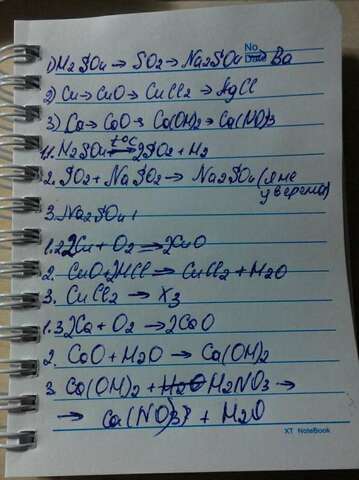 1) H2SO4 → SO2 → Na2SO4 → Ba
2) Cu → CuO → CuCl2 → AgCl
3) Ca → CaO → Ca(OH)2 → Ca(NO)3
1.1. H2SO4 ⇄ t°C 2SO2 + H2
2. SO2 + NaSO2 → Na2SO4 (я не уверена)
3. Na2SO4 +
1.2 2Cu + O2 → 2CuO
2. CuO + 2HCl → CuCl2 + H2O
3. CuCl2 → X3
1.3 2Ca + O2 → 2CaO
2. CaO + H2O → Ca(OH)2
3. Ca(OH)2 + H2NO3 →
→ Ca(NO3) + H2O
XT NoteBook